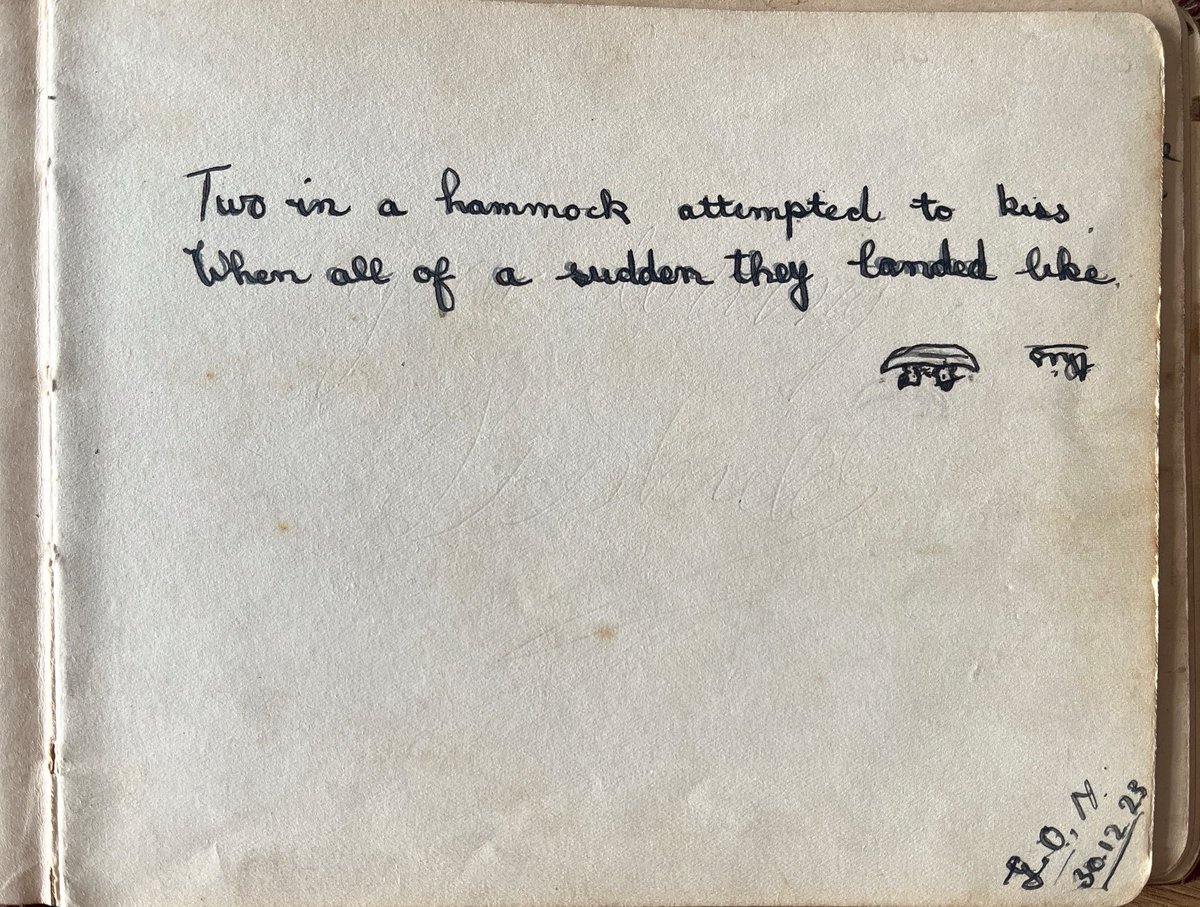 Two in a hammock attempted to kiss.
When all of a sudden they landed like.
this
30.12.23